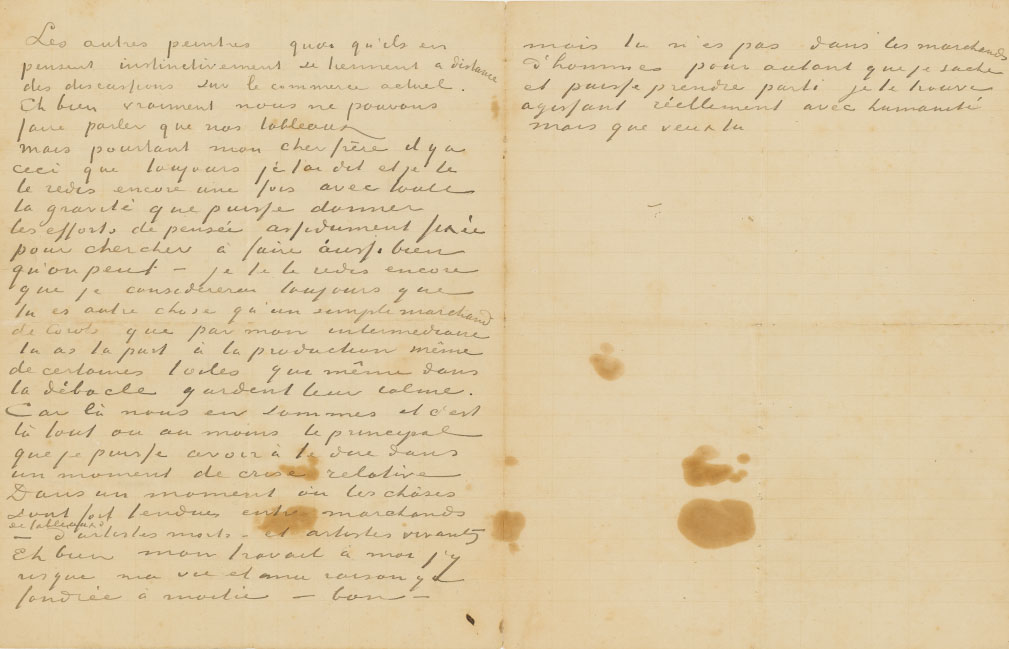 Les autres peintres quoi qu'ils en
pensent instinctivement se tiennent a distance
des discussions sur le commerce actuel.
Eh bien vraiment nous ne pouvons
faire parler que nos tableaux
mais pourtant mon cher frère il y a
ceci que toujours je t'ai dit et je te
le redis encore une fois avec toute
la gravité que puisse donner
les efforts de pensée assidument fixée
pour chercher à faire aussi bien
qu'on peut – je te le redis encore
que je considererai toujours que
tu es autre chose qu'un simple marchand
de Corots que par mon intermediaire
tu as ta part à la production même
de certaines toiles que même dans
la débacle gardent leur calme.
Car là nous en sommes et c'est
là tout ou au moins le principal
que je puisse avoir à te dire dans
un moment de crise relative
Dans un moment où les choses
sont fort tendues entre marchands
de tableaux
– d'artistes morts – et artistes vivants
Eh bien mon travail à moi j'y
risque ma vie et ma raison y a
fondrée à moitié – bon –
mais tu n'es pas dans les marchands
d'hommes pour autant que je sache
et puisse prendre parti je te trouve
agissant réellement avec humanité
mais que veux tu